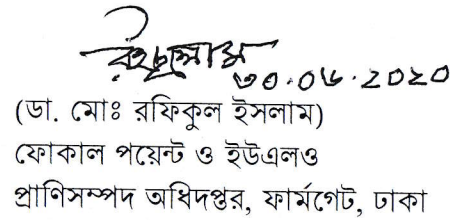 ৩০.০৬.২০২০
(ডা. মোঃ রফিকুল ইসলাম)
ফোকাল পয়েন্ট ও ইউএলও
প্রাণিসম্পদ অধিদপ্তর, ফার্মগেট, ঢাকা